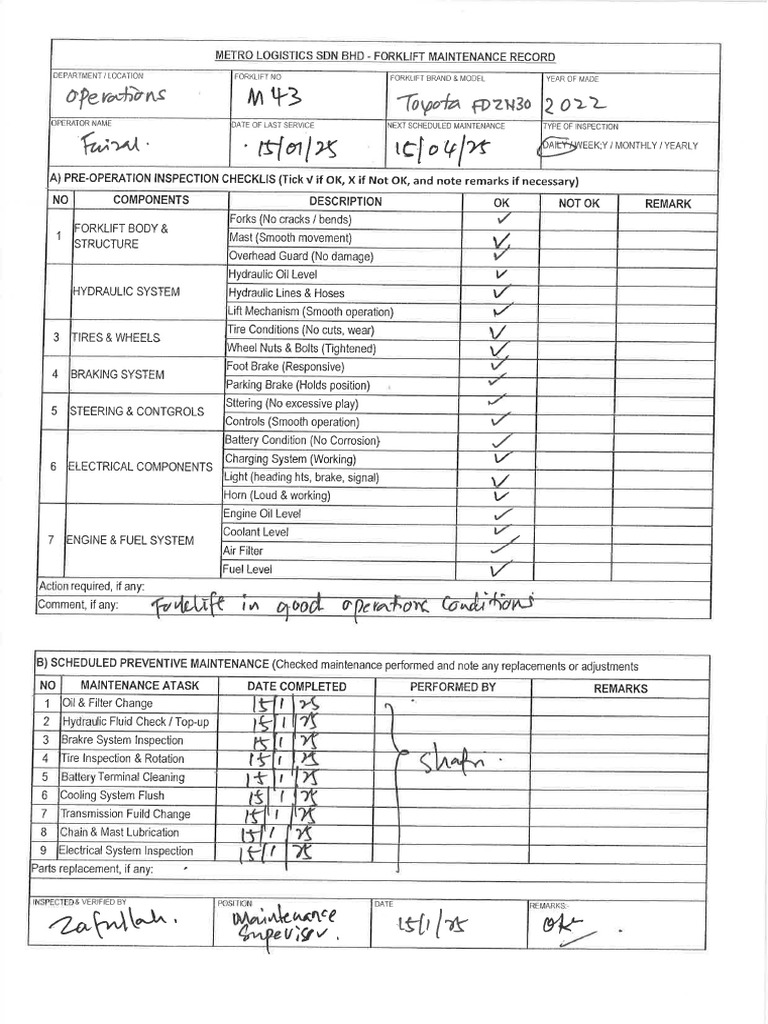 METRO LOGISTICS SDN BHD - FORKLIFT MAINTENANCE RECORD
DEPARTMENT / LOCATION FORKLIFT NO FORKLIFT BRAND & MODEL YEAR OF MADE
Operations M43 Toyota FDZN30 2022
OPERATOR NAME DATE OF LAST SERVICE NEXT SCHEDULED MAINTENANCE TYPE OF INSPECTION
Faizal. 15/01/25 15/04/25 DAILY / WEEK;Y / MONTHLY / YEARLY
A) PRE-OPERATION INSPECTION CHECKLIS (Tick √ if OK, X if Not OK, and note remarks if necessary)
NO COMPONENTS DESCRIPTION OK NOT OK REMARK
1 FORKLIFT BODY & STRUCTURE Forks (No cracks / bends) ✓
Mast (Smooth movement) ✓
Overhead Guard (No damage) ✓
HYDRAULIC SYSTEM Hydraulic Oil Level ✓
Hydraulic Lines & Hoses ✓
Lift Mechanism (Smooth operation) ✓
3 TIRES & WHEELS Tire Conditions (No cuts, wear) ✓
Wheel Nuts & Bolts (Tightened) ✓
4 BRAKING SYSTEM Foot Brake (Responsive) ✓
Parking Brake (Holds position) ✓
5 STEERING & CONTGROLS Sttering (No excessive play) ✓
Controls (Smooth operation) ✓
6 ELECTRICAL COMPONENTS Battery Condition (No Corrosion) ✓
Charging System (Working) ✓
Light (heading hts, brake, signal) ✓
Horn (Loud & working) ✓
7 ENGINE & FUEL SYSTEM Engine Oil Level ✓
Coolant Level ✓
Air Filter ✓
Fuel Level ✓
Action required, if any:
Comment, if any: Forklift in good operations conditions
B) SCHEDULED PREVENTIVE MAINTENANCE (Checked maintenance performed and note any replacements or adjustments
NO MAINTENANCE ATASK DATE COMPLETED PERFORMED BY REMARKS
1 Oil & Filter Change 15/1/25
2 Hydraulic Fluid Check / Top-up 15/1/25
3 Brakre System Inspection 15/1/25
4 Tire Inspection & Rotation 15/1/25
5 Battery Terminal Cleaning 15/1/25
6 Cooling System Flush 15/1/25
7 Transmission Fuild Change 15/1/25
8 Chain & Mast Lubrication 15/1/25
9 Electrical System Inspection 15/1/25
Parts replacement, if any:
INSPECTED & VERIFIED BY POSITION DATE REMARKS:-
Zafullah. Maintenance 15/1/25 OK
Supervisor.